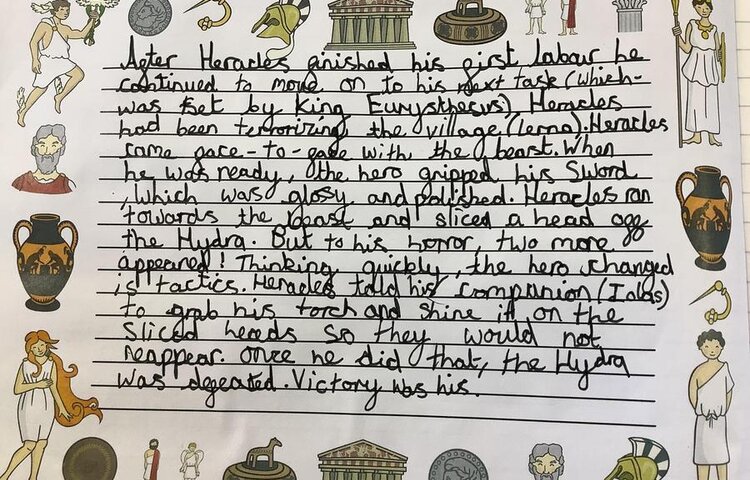 After Heracles finished his first labour he
continued to move on to his next task (which
was set by King Eurystheus) Heracles
had been terrorizing the village (lerna). Heracles
came face-to-face with the bearst. When
he was ready, the hero gripped his Sword
, which was glossy and polished. Heracles ran
towards the beast and sliced a head off
the Hydra. But to his horror, two more
appeared! Thinking quickly, the hero changed
is tactics. Heracles told his companion (Iolas)
to grab his torch and shine it on the
sliced heads so they would not
reappear. once he did that, the Hydra
was defeated. Victory was his.